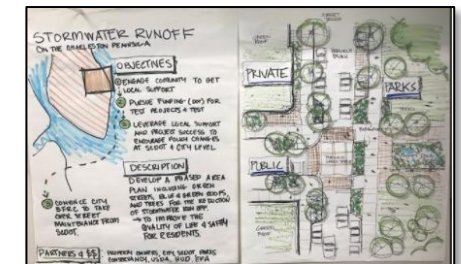 STORMWATER RUNOFF
ON THE CHARLESTON PENINSULA
OBJECTIVES
① ENGAGE COMMUNITY TO GET
LOCAL SUPPORT
② PURSUE FUNDING (DOT) FOR
TEST PROJECTS + TEST
③ LEVERAGE LOCAL SUPPORT
AND PROJECT SUCCESS TO
ENCOURAGE POLICY CHANGES
AT SCDOT & CITY LEVEL
DESCRIPTION
DEVELOP A PHASED AREA
PLAN INCLUDING GREEN
STREETS, BLUE & GREEN ROOFS,
AND TREES FOR THE REDUCTION
OF STORMWATER RUN OFF.
→ TO IMPROVE THE
QUALITY OF LIFE & SAFETY
FOR RESIDENTS.
CONVINCE CITY
TO TAKE
OVER STREET
MAINTENANCE FROM
SCDOT.
PARTNERS & $$
PROPERTY OWNERS, CITY, SCDOT, PARKS
CONSERVANCY, USDA, HUD, EPA
PRIVATE
PARKS
PUBLIC
GREEN
ROOF